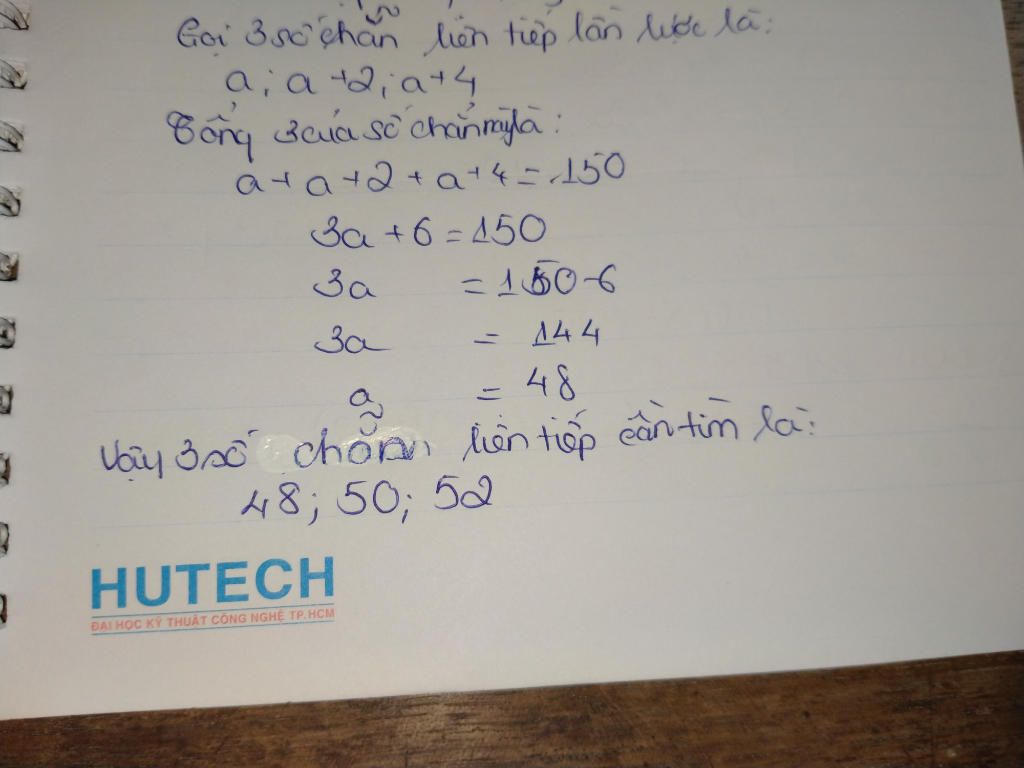 Gọi 3 số chẵn liên tiếp lần lược là:
a; a+2; a+4
Tổng 3 của số chẵn này là:
a + a + 2 + a + 4 = 150
3a + 6 = 150
3a = 150 - 6
3a = 144
a = 48
Vậy 3 số chẵn liên tiếp cần tìm là:
48; 50; 52
HUTECH
ĐẠI HỌC KỸ THUẬT CÔNG NGHỆ TP.HCM